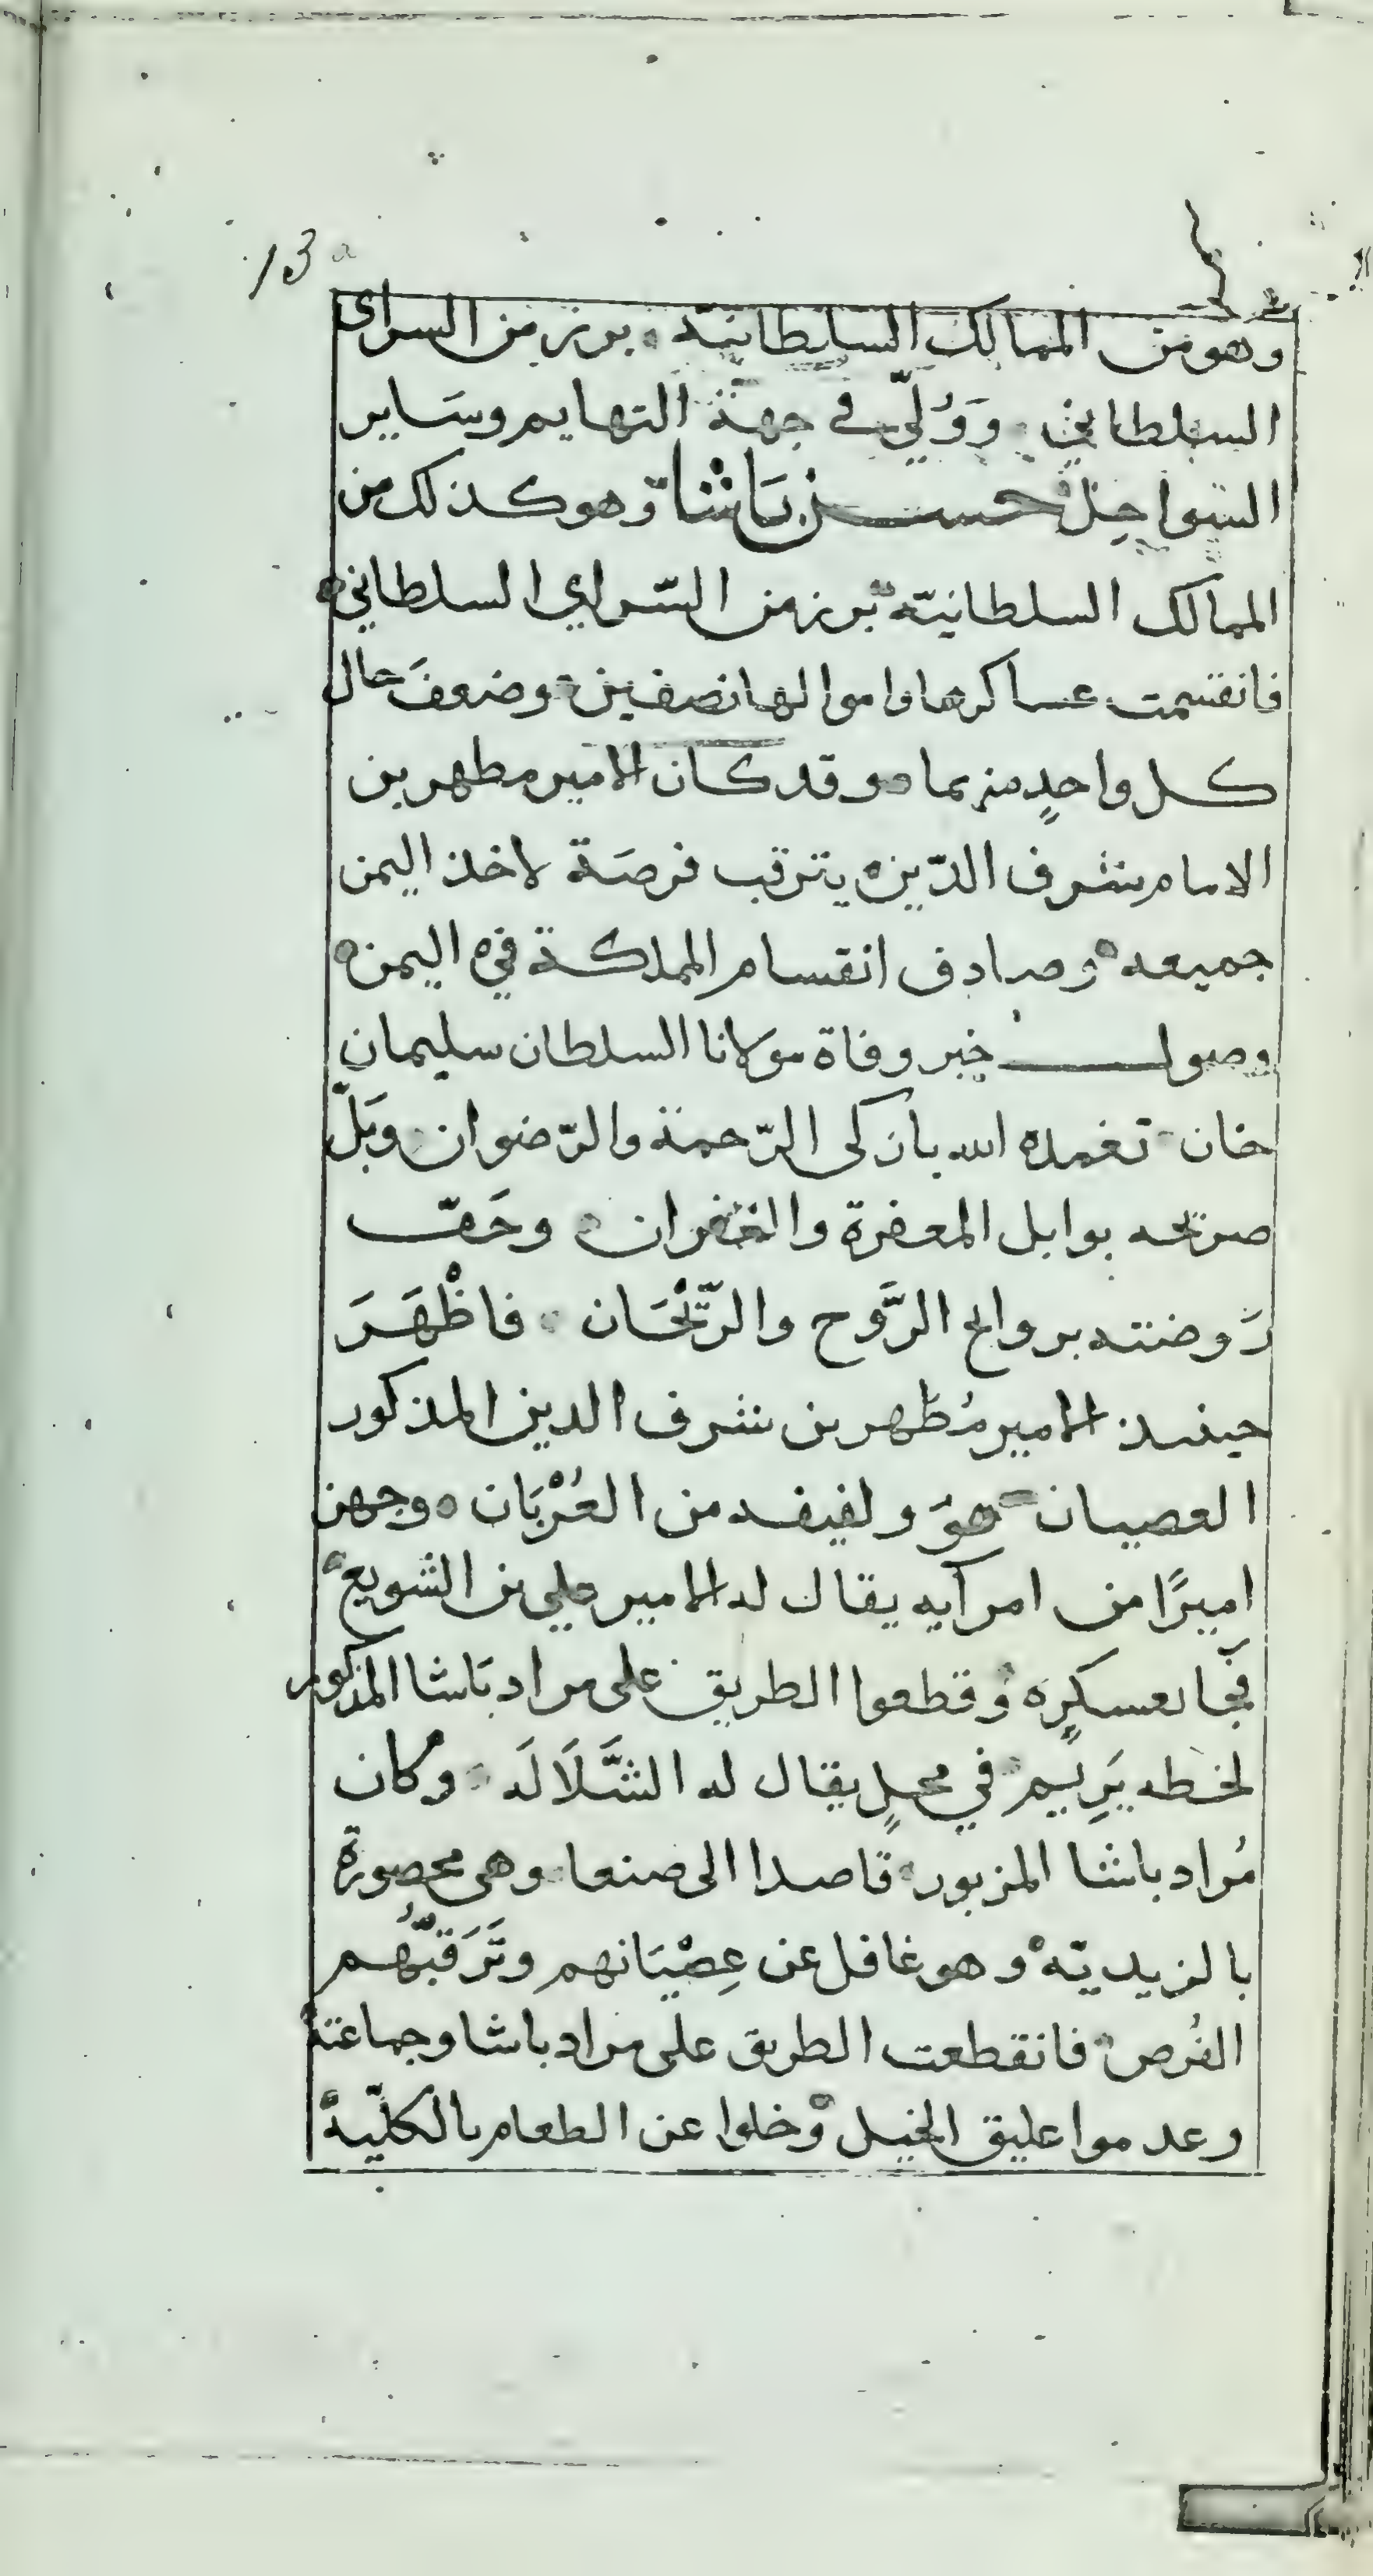 13 a
وهو من الممالك السلطانية برز من السراى
السلطاني وَوُلّي في جهة التهايم وساير
السواحل حسن باشا وهو كذلك من
الممالك السلطانيّة برز من السّراي السلطاني
فانقسمت عساكرها واموالها نصفين وضعفَ حال
كل واحدٍ منهما وقد كان الامير مطهر بن
الامام شرف الدّين يترقب فرصَة لاخذ اليمن
جميعه وصادف انقسام المملكة في اليمن
وصول خبر وفاة مولانا السلطان سليمان
خان تغمده الله بازكى الرّحمة والرّضوان وبَلّ
ضريحه بوابل المغفرة والغفران وحَفّ
رَوضته بروايح الرَّوح والرّيْحَان فاظْهَرَ
حينئذ الامير مُطهر بن شرف الدين المذكور
العصيان هوَ ولفيفه من العُرْبَان وجهز
اميرًا من امرآيه يقال له الامير علي بن الشويع
فجآ بعسكرٍه وقطعوا الطريق على مراد بَاشا المذكور
لخطه يَرِيم في محلٍ يقال له الشَّلَالَه وكان
مُراد باشا المزبور قاصدا الى صنعا وهى محصورة
بالزيديّه وهو غافل عن عِصْيَانهم وتَرَقبُّهُم
الفُرص فانقطعت الطريق على مراد باشا وجماعته
وعدموا عليق الخيل وخلوا عن الطعام بالكليّه